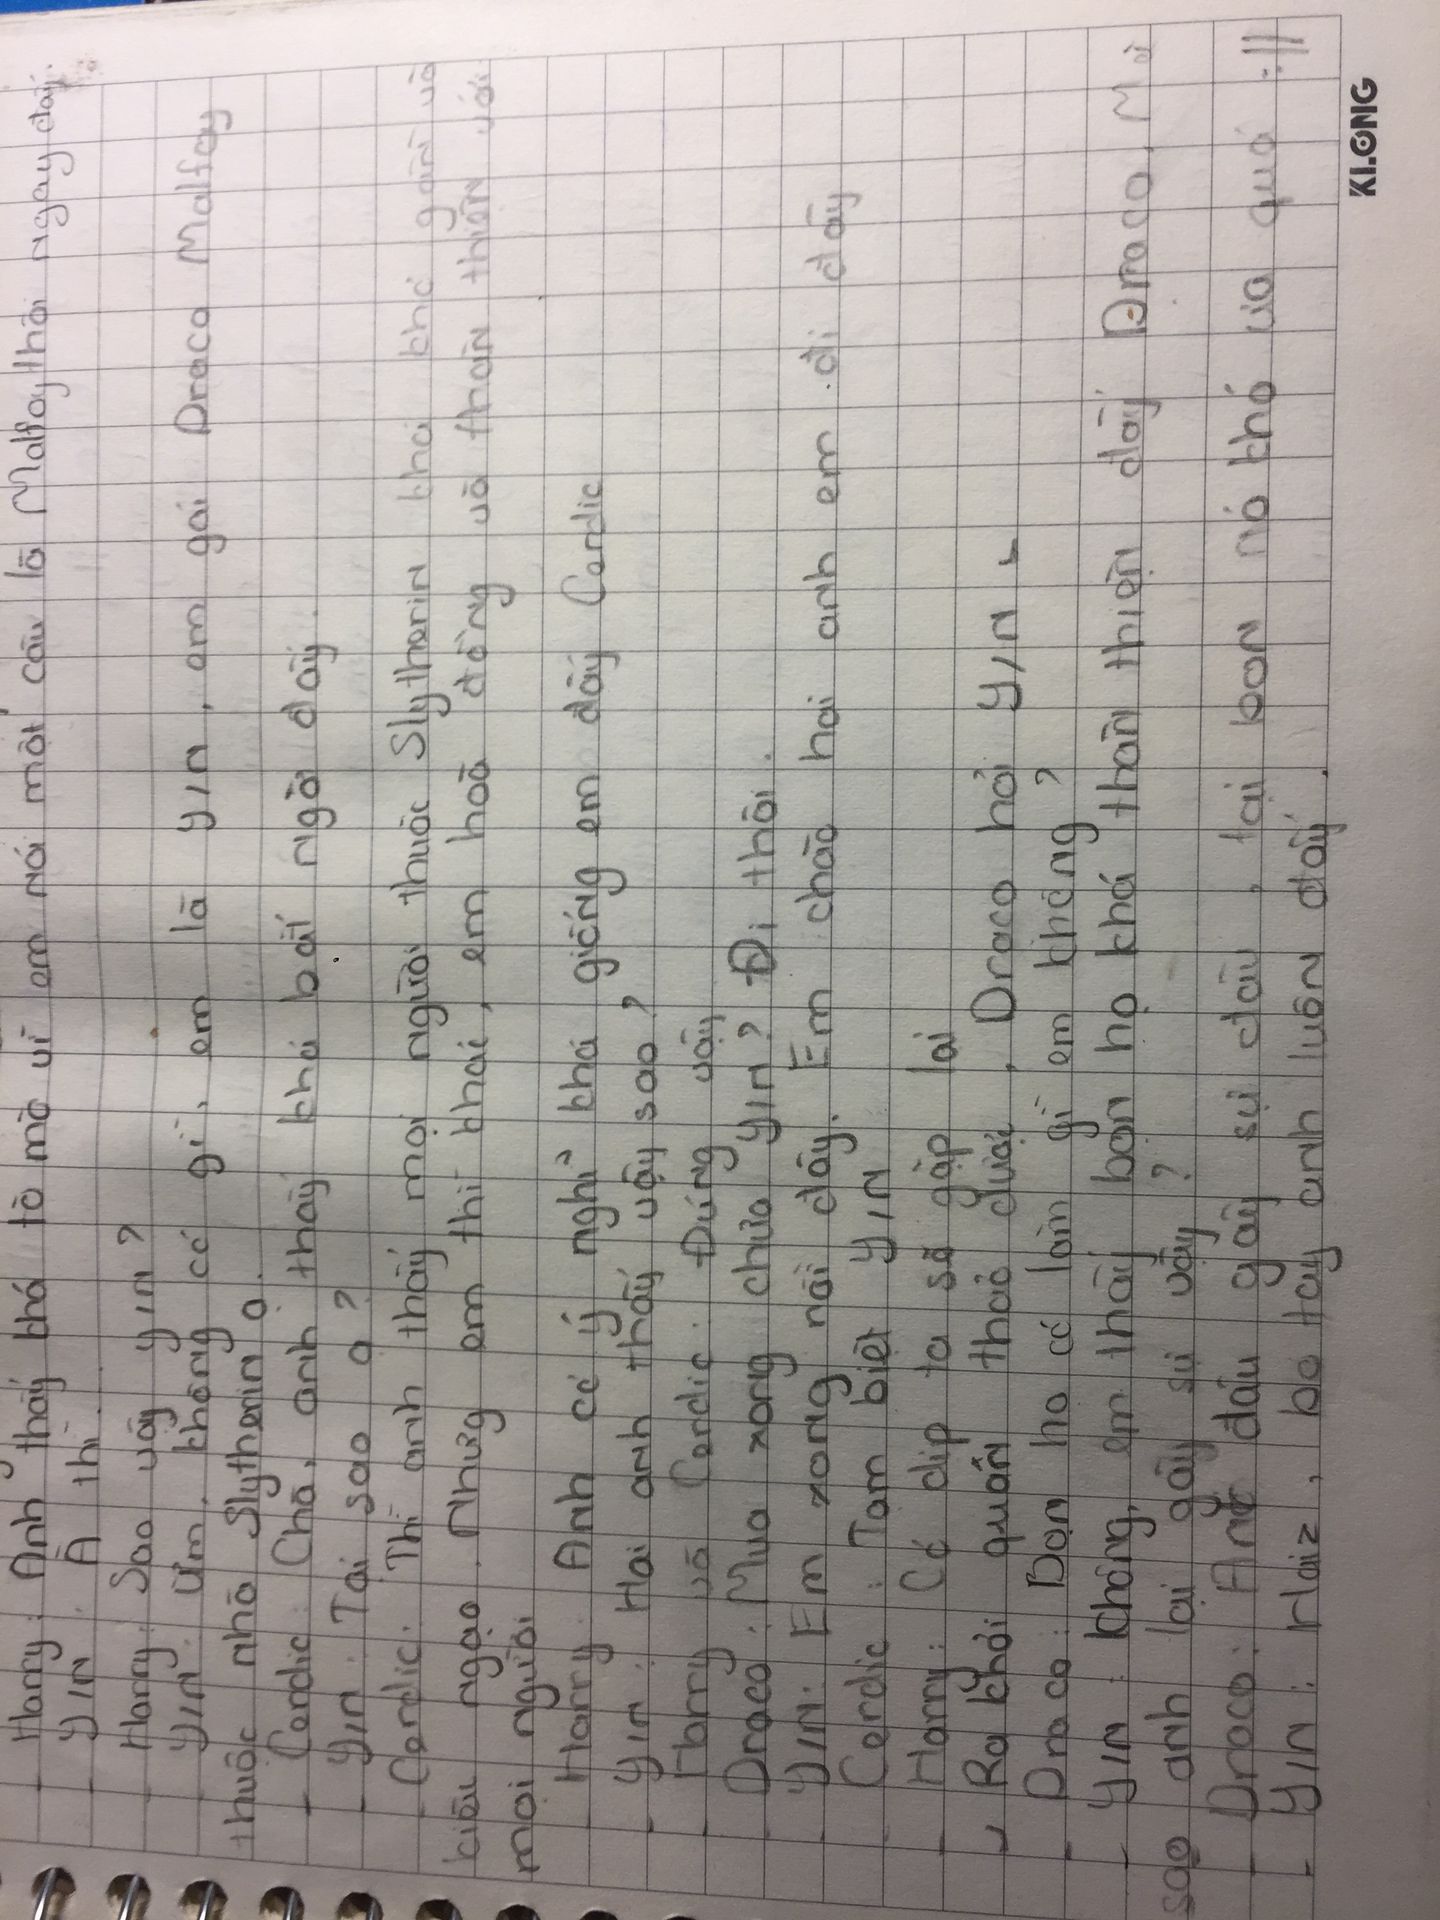 Harry: Anh thấy khá tò mò vì em nói một câu là Malfoy thôi ngay đấy.
- YIN: À thì...
- Harry: Sao vậy YIN?
- YIN: Ừm, không có gì, em là YIN, em gái Draco Malfoy
thuộc nhà Slytherin ạ.
- Cerdic: Chà, anh thấy khá bất ngờ đấy.
- YIN: Tại sao ạ?
- Cerdic: Thì anh thấy mọi người thuộc Slytherin khá khó gần và
kiêu ngạo. Nhưng em thì khác, em hoà đồng và thân thiện với
mọi người
- Harry: Anh có ý nghĩ khá giống em đấy Cerdic
- YIN: Hai anh thấy vậy sao?
- Harry và Cerdic: Đúng vậy
- Draco: Mua xong chưa YIN? Đi thôi.
- YIN: Em xong rồi đây. Em chào hai anh em đi đây
- Cerdic: Tạm biệt YIN
- Harry: Có dịp ta sẽ gặp lại
Ra khỏi quán thảo dược, Draco hỏi YIN
- Draco: Bọn họ có làm gì em không?
- YIN: Không, em thấy bọn họ khá thân thiện đấy Draco, Mà
sao anh lại gây sự vậy?
- Draco: Anh đâu gây sự đâu, tại bọn nó khó ưa quá :||
- YIN: Haiz, bó tay anh luôn đấy.
KLONG